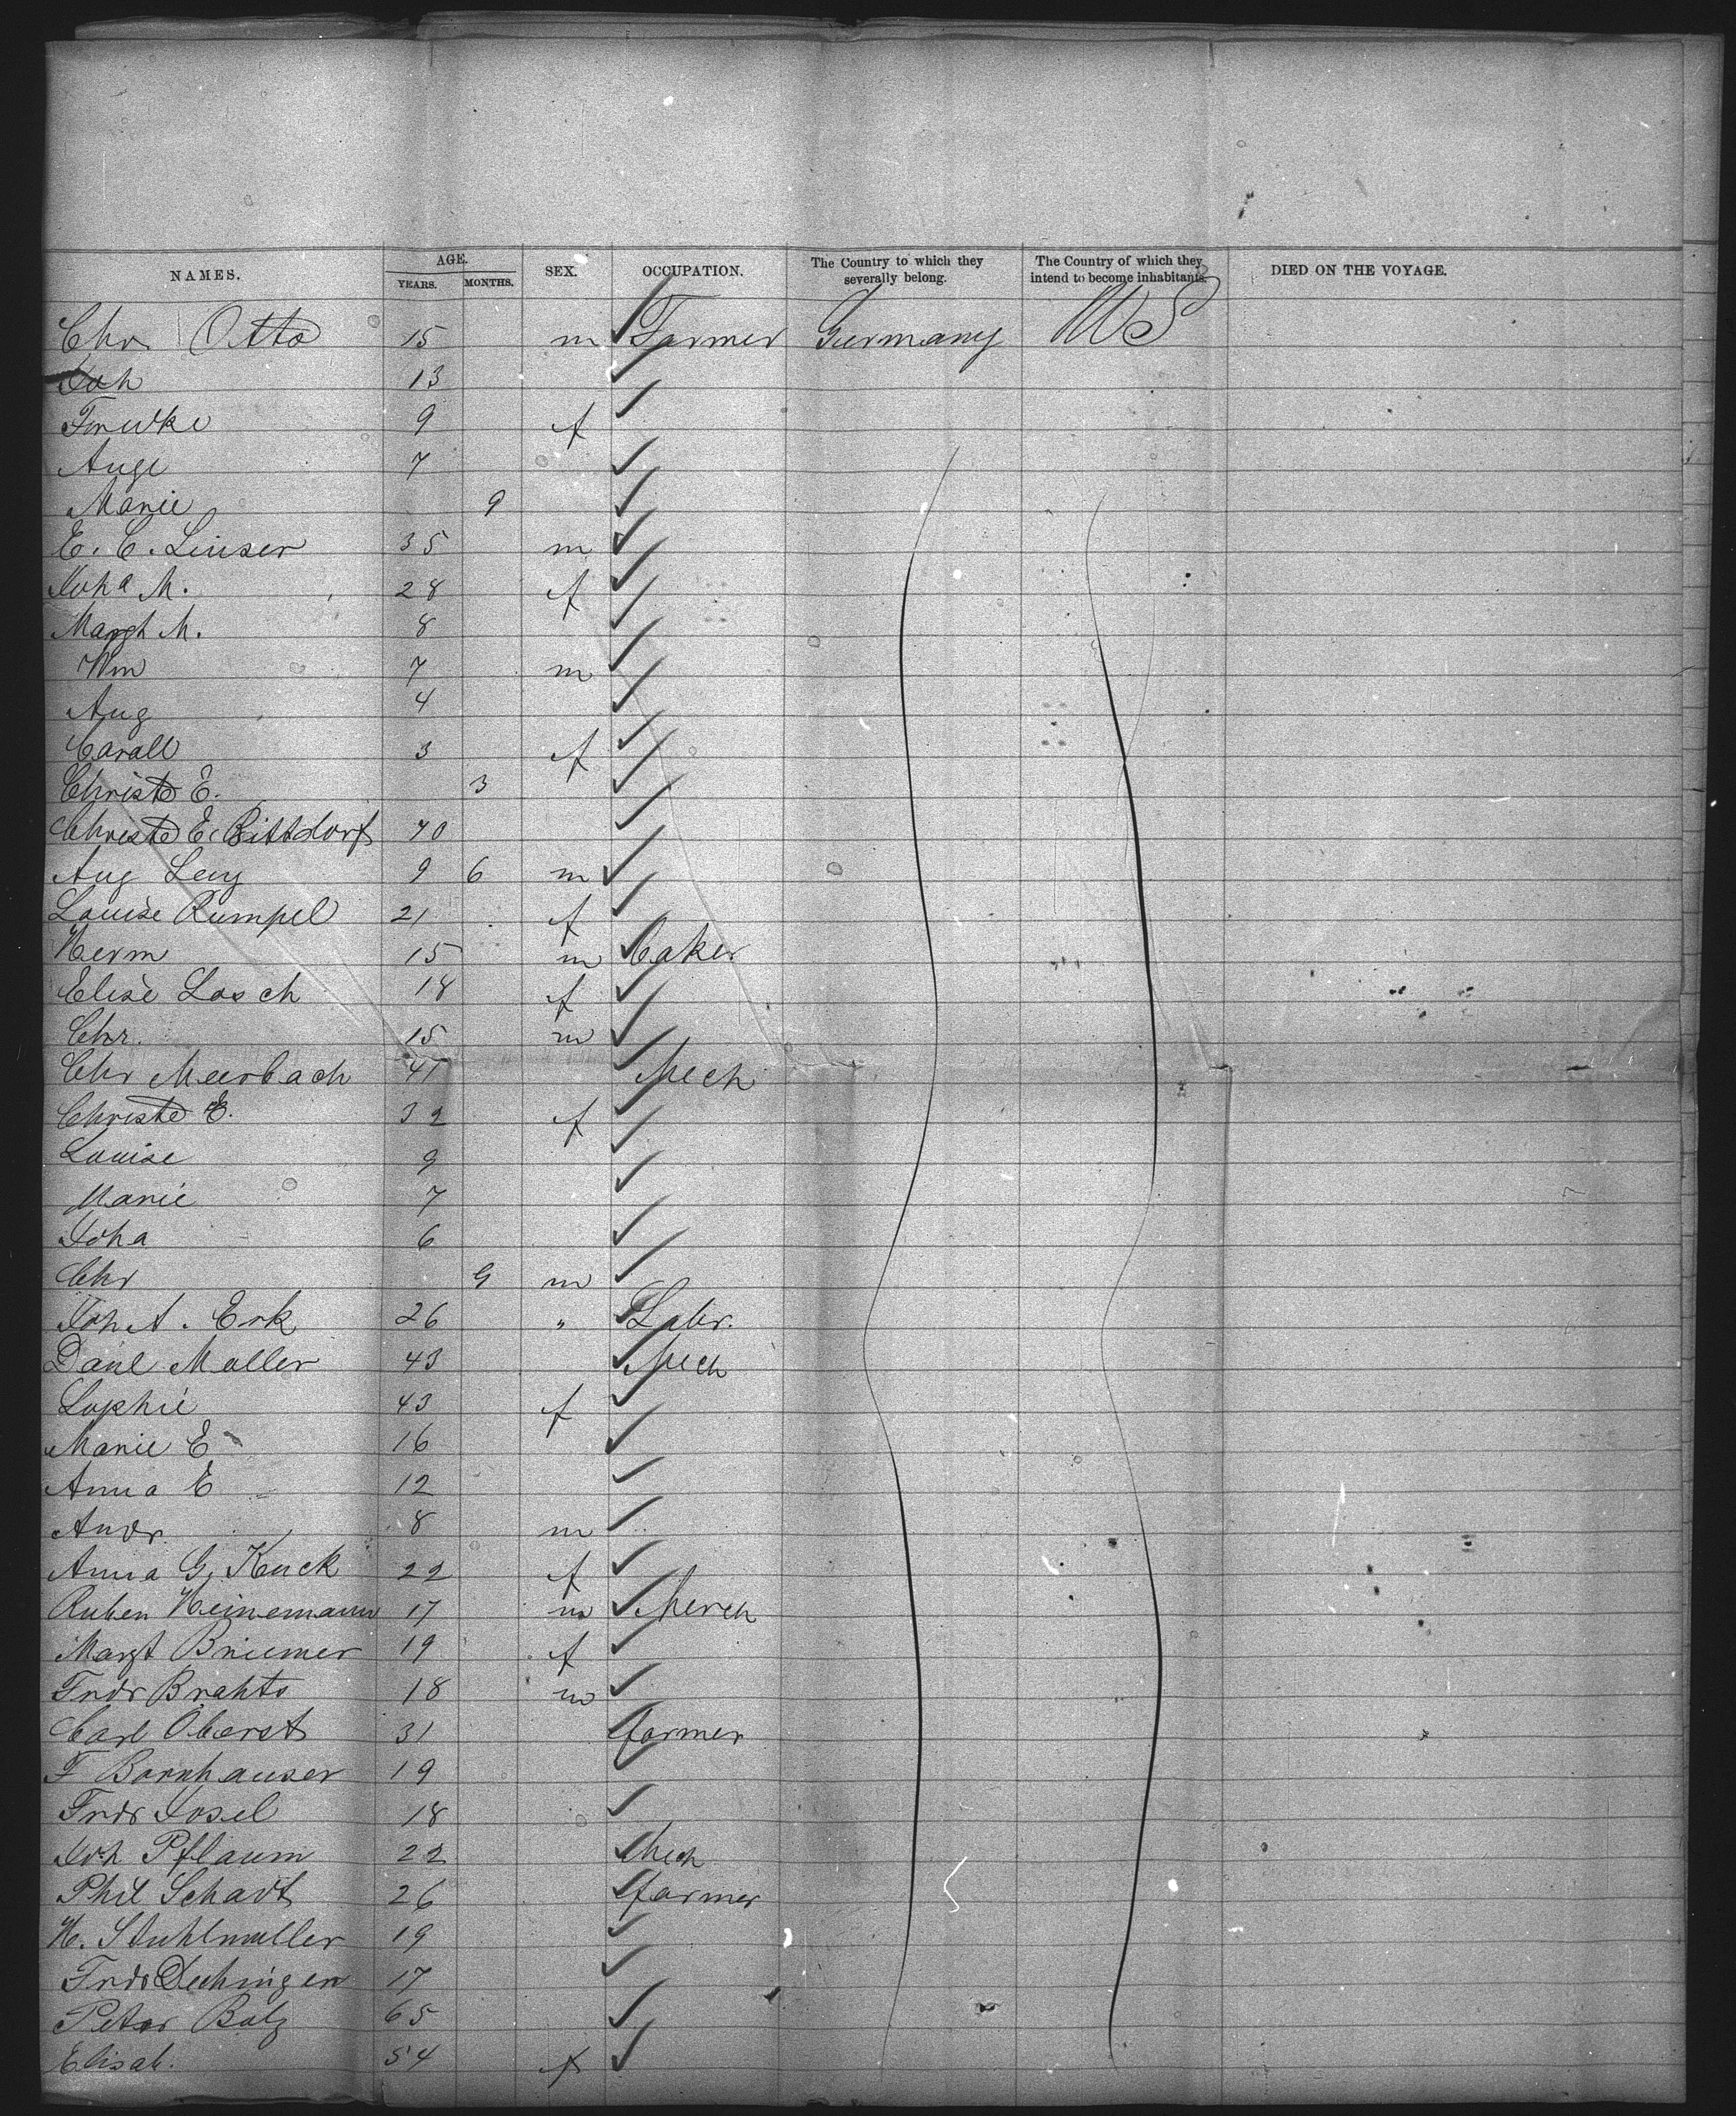 NAMES. AGE. YEARS. MONTHS. SEX. OCCUPATION. The Country to which they severally belong. The Country of which they intend to become inhabitants. DIED ON THE VOYAGE.
Chr Otto 15 m Farmer Germany US
Joh 13
9 f
Auge 7
Marie 9
E. C. Linser 35 m
Joha M. 28 f
Margt M. 8
Wm 7 m
Aug 4
Caroll 3 f
Christe E. 3
Christe E. Bittdorf 70
Aug Levy 9 6 m
Louise Rumpel 21 f
Herm 15 m baker
Elise Losch 18 f
Chr. 15 m
Chr Meerbach 41 Mech
Christe E. 32 f
Louise 9
Marie 7
Joha 6
Chr 9 m
Joh A. Erk 26 " Labr.
Danl Moller 43 Mech
Sophie 43 f
Marie E 16
Anna E 12
Andr. 8 m
Anna G. Kuck 22 f
Ruben Heinemann 17 m Merch
Margt Briemer 19 f
Fridr Brahts 18 m
Carl Oberst 31 farmer
F Bornhauser 19
Fridr Josel 18
Joh Pflaum 22 Mech
Phil Schadt 26 farmer
H. Stuhlmuller 19
Fridr Dechingen 17
Peter Bolz 65
Elisab. 54 f